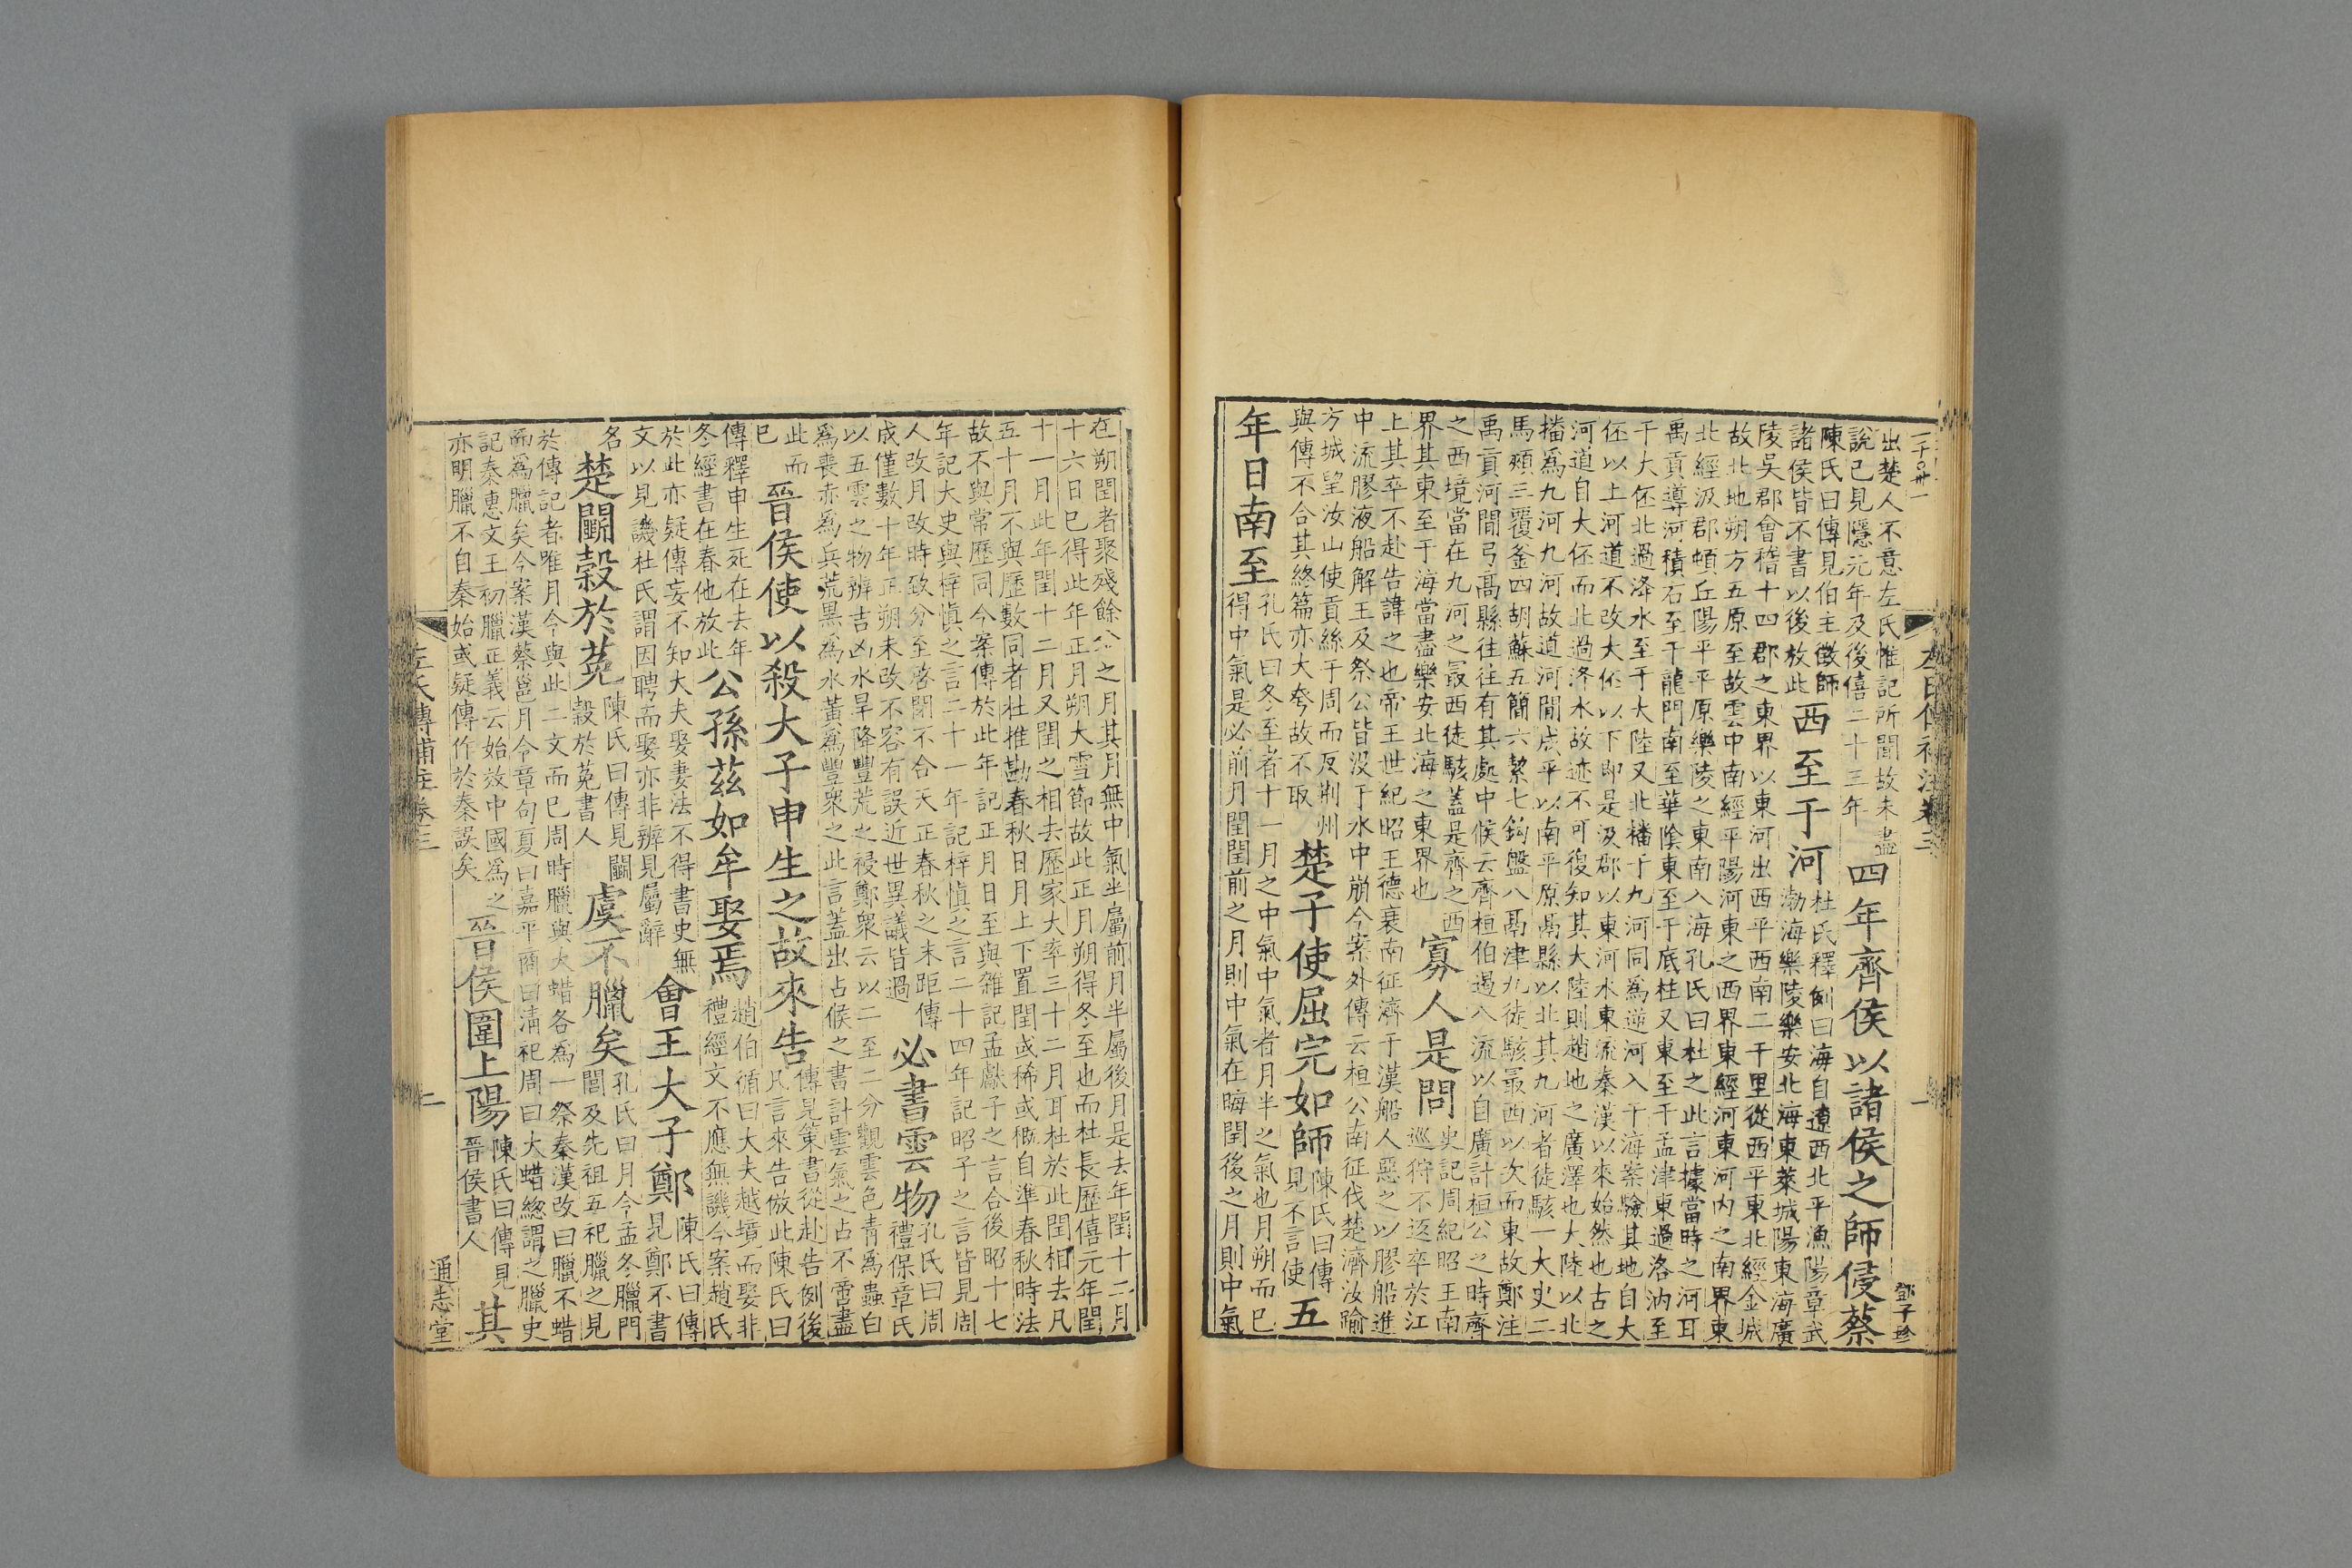 一千〇卅一
左氏傳補注卷三
一
鄧子珍
出楚人不意左氏惟記所聞故未盡
說已見隱元年及後僖二十三年
四年齊侯以諸侯之師侵蔡
陳氏曰傳見伯主徵師
諸侯皆不書以後放此
西至于河
杜氏釋例曰海自遼西北平漁陽章武
渤海樂陵樂安北海東萊城陽東海廣
陵吳郡會稽十四郡之東界以東河出西平西南二千里從西平東北經金城
故北地朔方五原至故雲中南經平陽河東之西界東經河東河內之南界東
北經汲郡頓丘陽平平原樂陵之東南入海孔氏曰杜之此言據當時之河耳
禹貢導河積石至于龍門南至華陰東至于底柱又東至于孟津東過洛汭至
于大伾北過洚水至于大陸又北播于九河同為逆河入于海案驗其地自大
伾以上河道不改大伾以下即是汲郡以東河水東流秦漢以來始然也古之
河道自大伾而北過洚水故迹不可復知其大陸則趙地之廣澤也大陸以北
播爲九河九河故道河間成平以南平原鬲縣以北其九河者徒駭一大史二
馬頰三覆釜四胡蘇五簡六絜七鉤盤八鬲津九徒駭最西以次而東故鄭注
禹貢河間弓高縣往往有其處中候云齊桓伯遏八流以自廣計桓公之時齊
之西境當在九河之最西徒駭蓋是齊之西
界其東至于海當盡樂安北海之東界也
寡人是問
史記周紀昭王南
巡狩不返卒於江
上其卒不赴告諱之也帝王世紀昭王德衰南征濟于漢船人惡之以膠船進
中流膠液船解王及祭公皆没于水中崩今案外傳云桓公南征伐楚濟汝踰
方城望汝山使貢絲于周而反荆州
與傳不合其終篇亦大夸故不取
楚子使屈完如師
陳氏曰傳
見不言使
五
年日南至
孔氏曰冬至者十一月之中氣中氣者月半之氣也月朔而巳
得中氣是必前月閏閏前之月則中氣在晦閏後之月則中氣
在朔閏者聚殘餘分之月其月無中氣半屬前月半屬後月是去年閏十二月
十六日巳得此年正月朔大雪節故此正月朔得冬至也而杜長歷僖元年閏
十一月此年閏十二月又閏之相去歷家大率三十二月耳杜於此閏相去凡
五十月不與歷數同者杜推勘春秋日月上下置閏或稀或概自準春秋時法
故不與常歷同今案傳於此年記正月日至與雜記孟獻子之言合後昭十七
年記大史與梓慎之言二十一年記梓慎之言二十四年記昭子之言皆見周
人改月改時致分至啓閉不合天正春秋之末距傳
成僅數十年正朔未改不容有誤近世異議皆過
必書雲物
孔氏曰周
禮保章氏
以五雲之物辨吉凶水旱降豐荒之祲鄭衆云以二至二分觀雲色青爲蟲白
爲喪赤爲兵荒黑爲水黃爲豐衆之此言蓋出占候之書計雲氣之占不啻盡
此而
巳
晉侯使以殺大子申生之故來告
傳見策書從赴告例後
凡言來告倣此陳氏曰
傳釋申生死在去年
冬經書在春他放此
公孫茲如牟娶焉
趙伯循曰大夫越境而娶非
禮經文不應無譏今案趙氏
於此亦疑傳妄不知大夫娶妻法不得書史無
文以見譏杜氏謂因聘而娶亦非辨見屬辭
會王大子鄭
陳氏曰傳
見鄭不書
名
楚鬬穀於菟
陳氏曰傳見鬬
穀於菟書人
虞不臘矣
孔氏曰月令孟冬臘門
閭及先祖五祀臘之見
於傳記者唯月令與此二文而巳周時臘與大蜡各爲一祭秦漢改曰臘不蜡
而爲臘矣今案漢蔡邕月令章句夏曰嘉平商曰清祀周曰大蜡緫謂之臘史
記秦惠文王初臘正義云始效中國爲之
亦明臘不自秦始或疑傳作於秦誤矣
晉侯圍上陽
陳氏曰傳見
晉侯書人
其
左氏傳補注卷三
通志堂